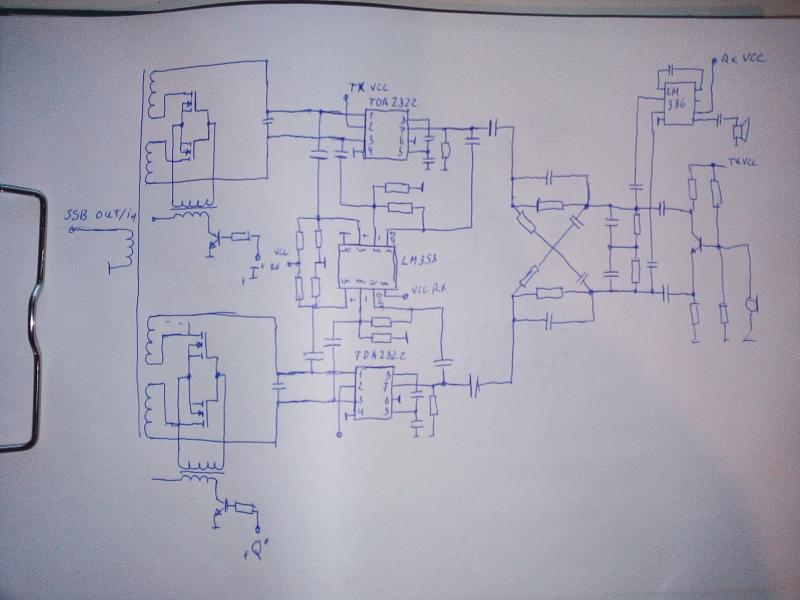 TX.VCC
TDA2822
1
8
2
7
3
6
4
5
LM
386
RX VCC
TX VCC
SSB OUT/in
"I"
VCC
RX
LM358
VCC RX
TDA2822
1
8
2
7
3
6
4
5
"Q"